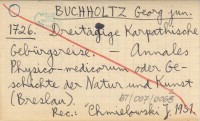 BUCHHOLTZ Georg jun.
1726. Dreitägige Karpathische
Gebürgsreise. – Annales
Physico-medicorum oder Ge-
schichte der Natur und Kunst
(Breslau).
BT/007/0068
Rec.: "Chmielowski J. 1951.